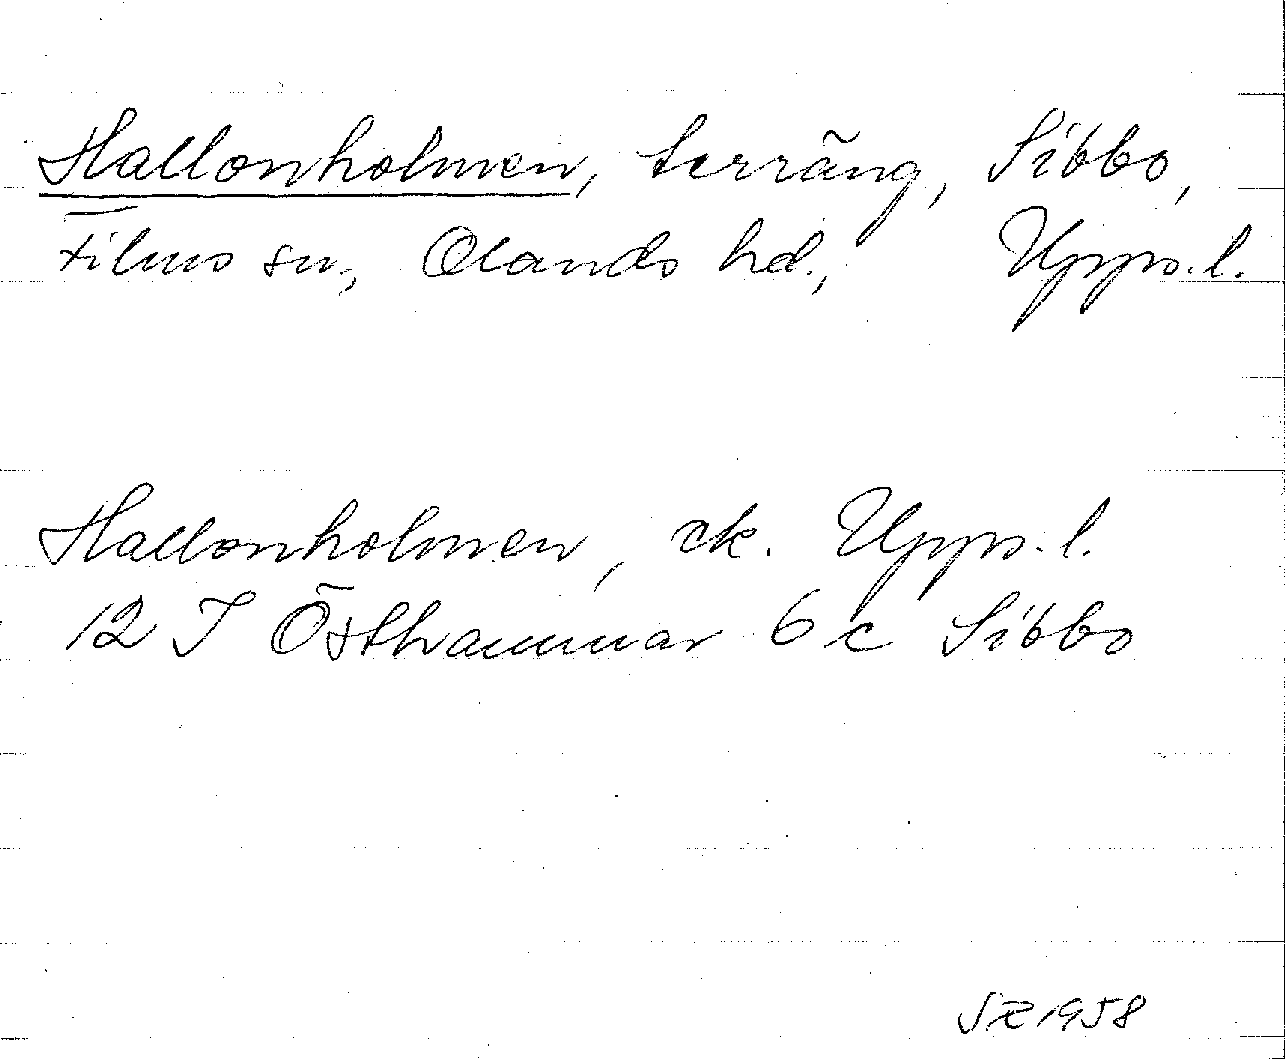 Hallonholmen, terräng, Sibbo,
Films sn, Olands hd., Upps. l.
Hallonholmen, ek. Upps. l.
12 I Östhammar 6 c Sibbo
1958